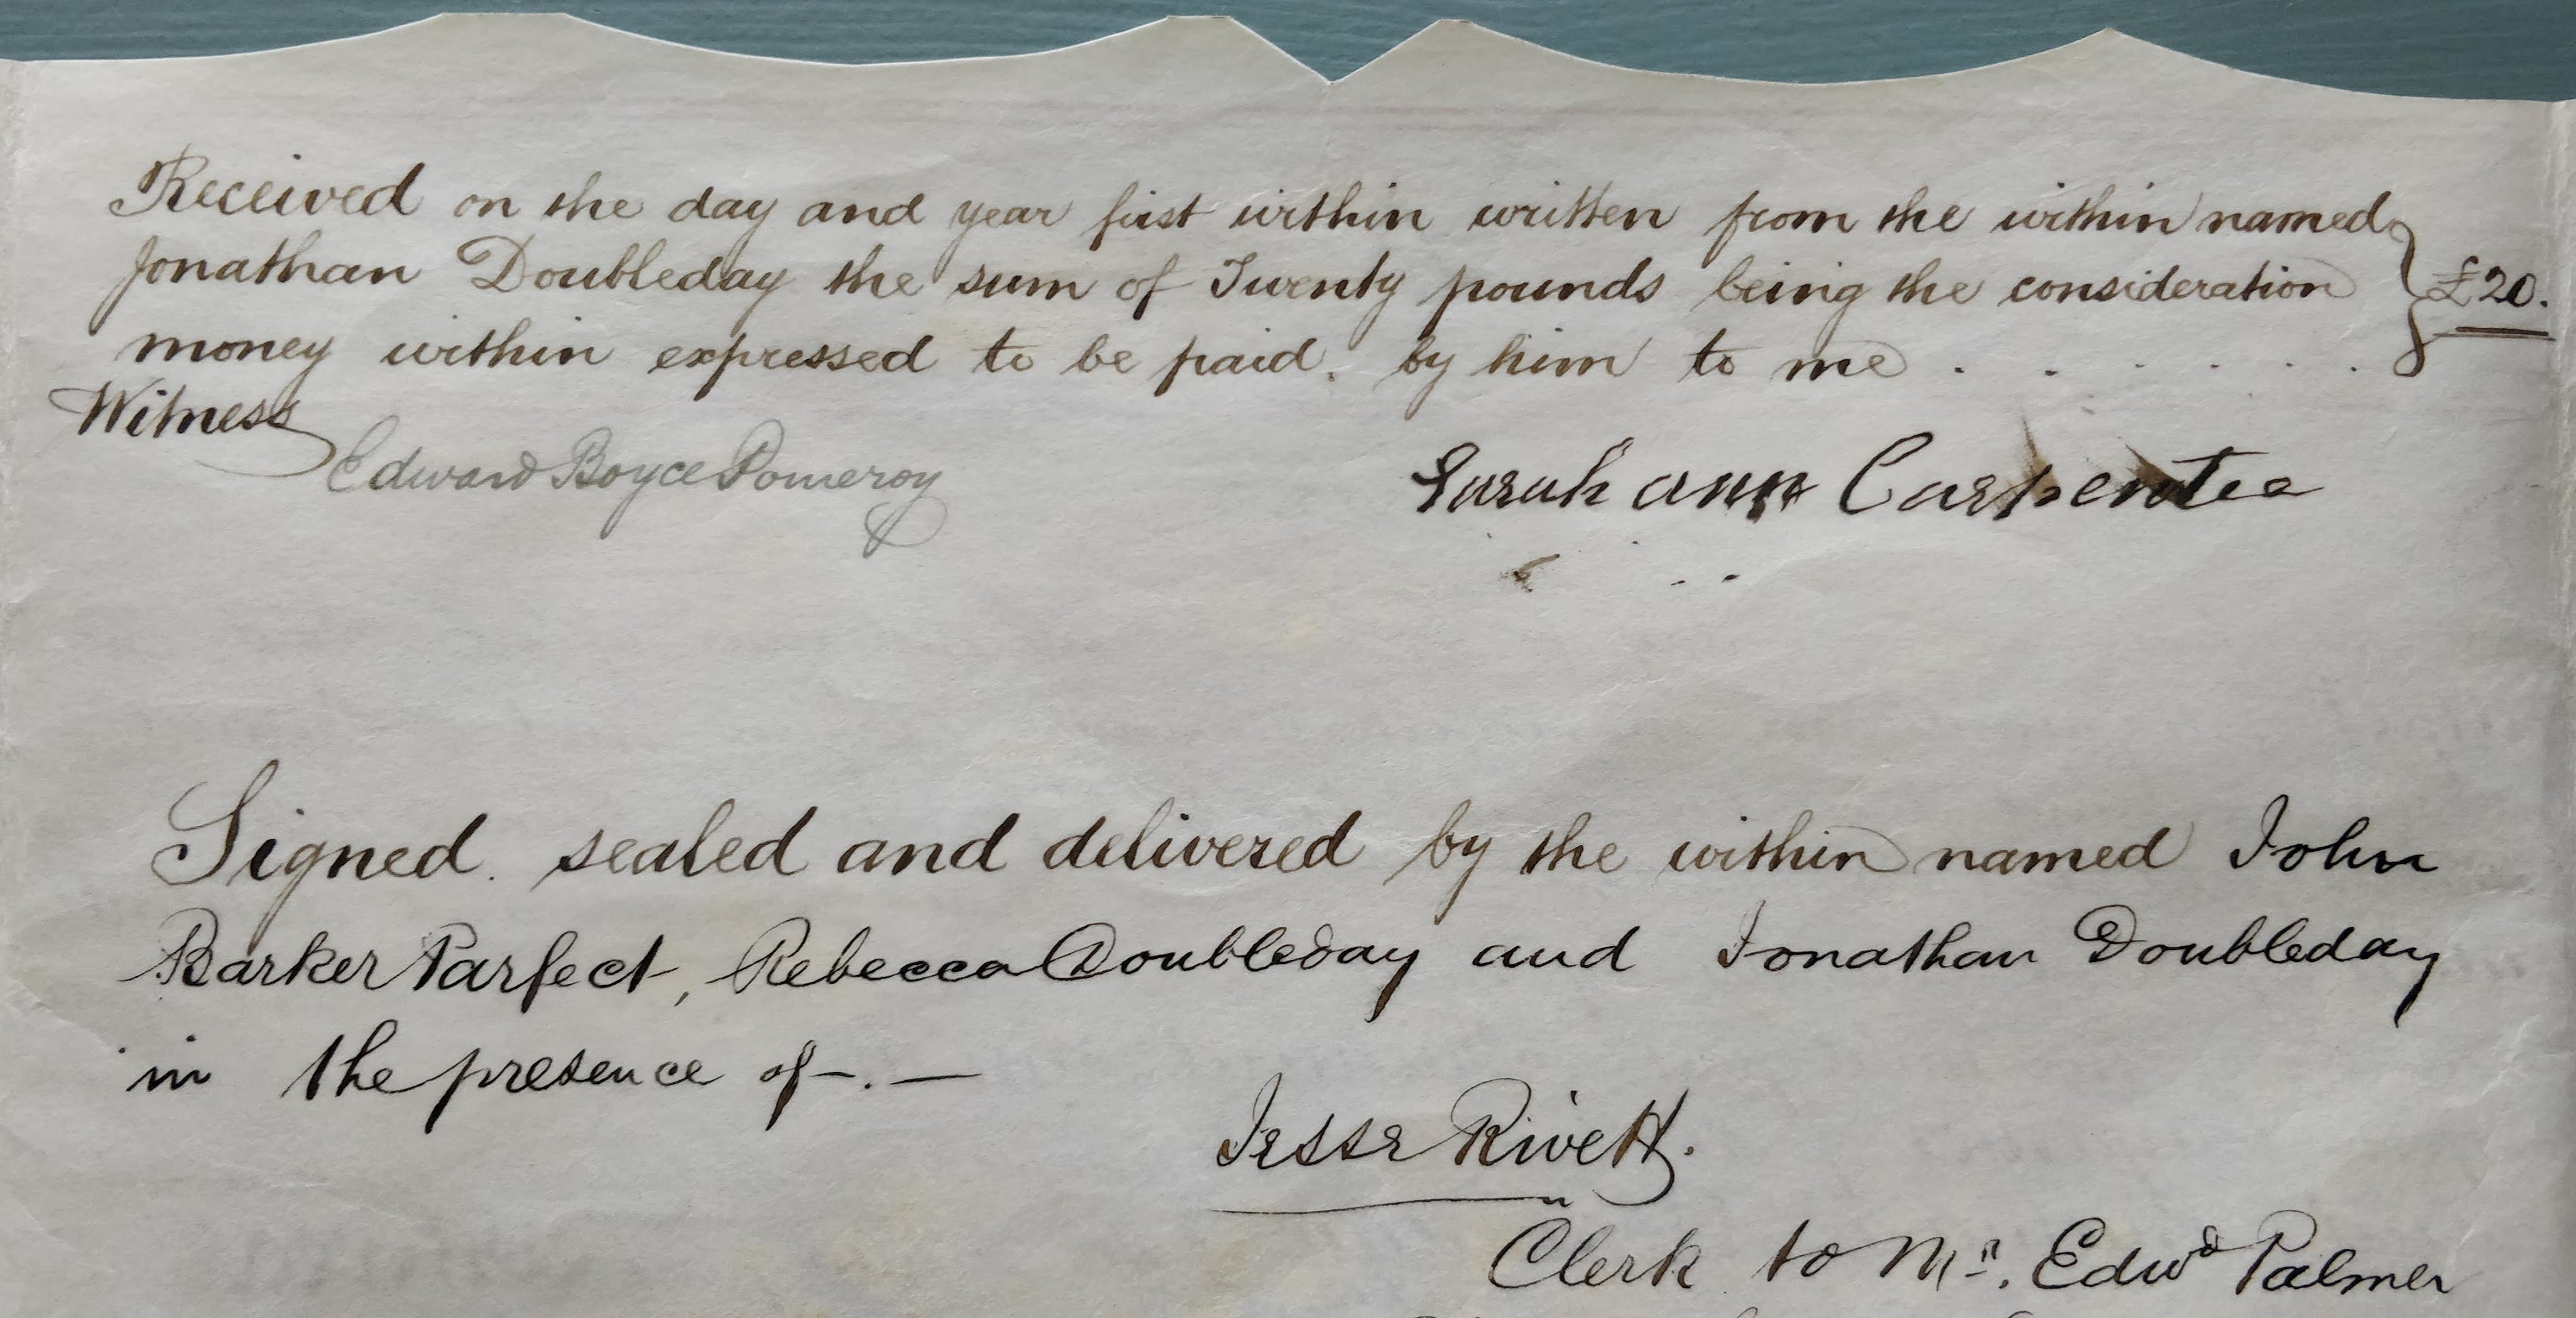 Received on the day and year first within written from the within named
Jonathan Doubleday the sum of Twenty pounds being the consideration
£20.
money within expressed to be paid. by him to me . . . . . . .
Witness
Edward Boyce Pomeroy
Sarah ann Carpenter
Signed. sealed and delivered by the within named John
Barker Parfect, Rebecca Doubleday and Jonathan Doubleday
in the presence of -. —
Jesse Rivett.
Clerk to Mr. Edwd Palmer